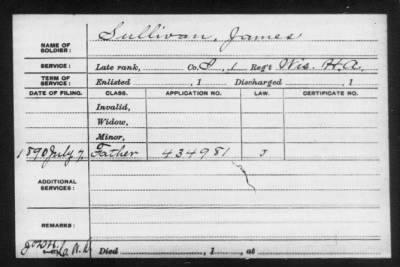 NAME OF SOLDIER: Sullivan, James
SERVICE: Late rank, Co. 1 Reg't Wis. H.A.
TERM OF SERVICE: Enlisted , 1 Discharged , 1
DATE OF FILING. CLASS. APPLICATION NO. LAW. CERTIFICATE NO.
Invalid,
Widow,
Minor,
1890 July 7. Father 434981 J
ADDITIONAL SERVICES:
REMARKS:
Died , 1 , at